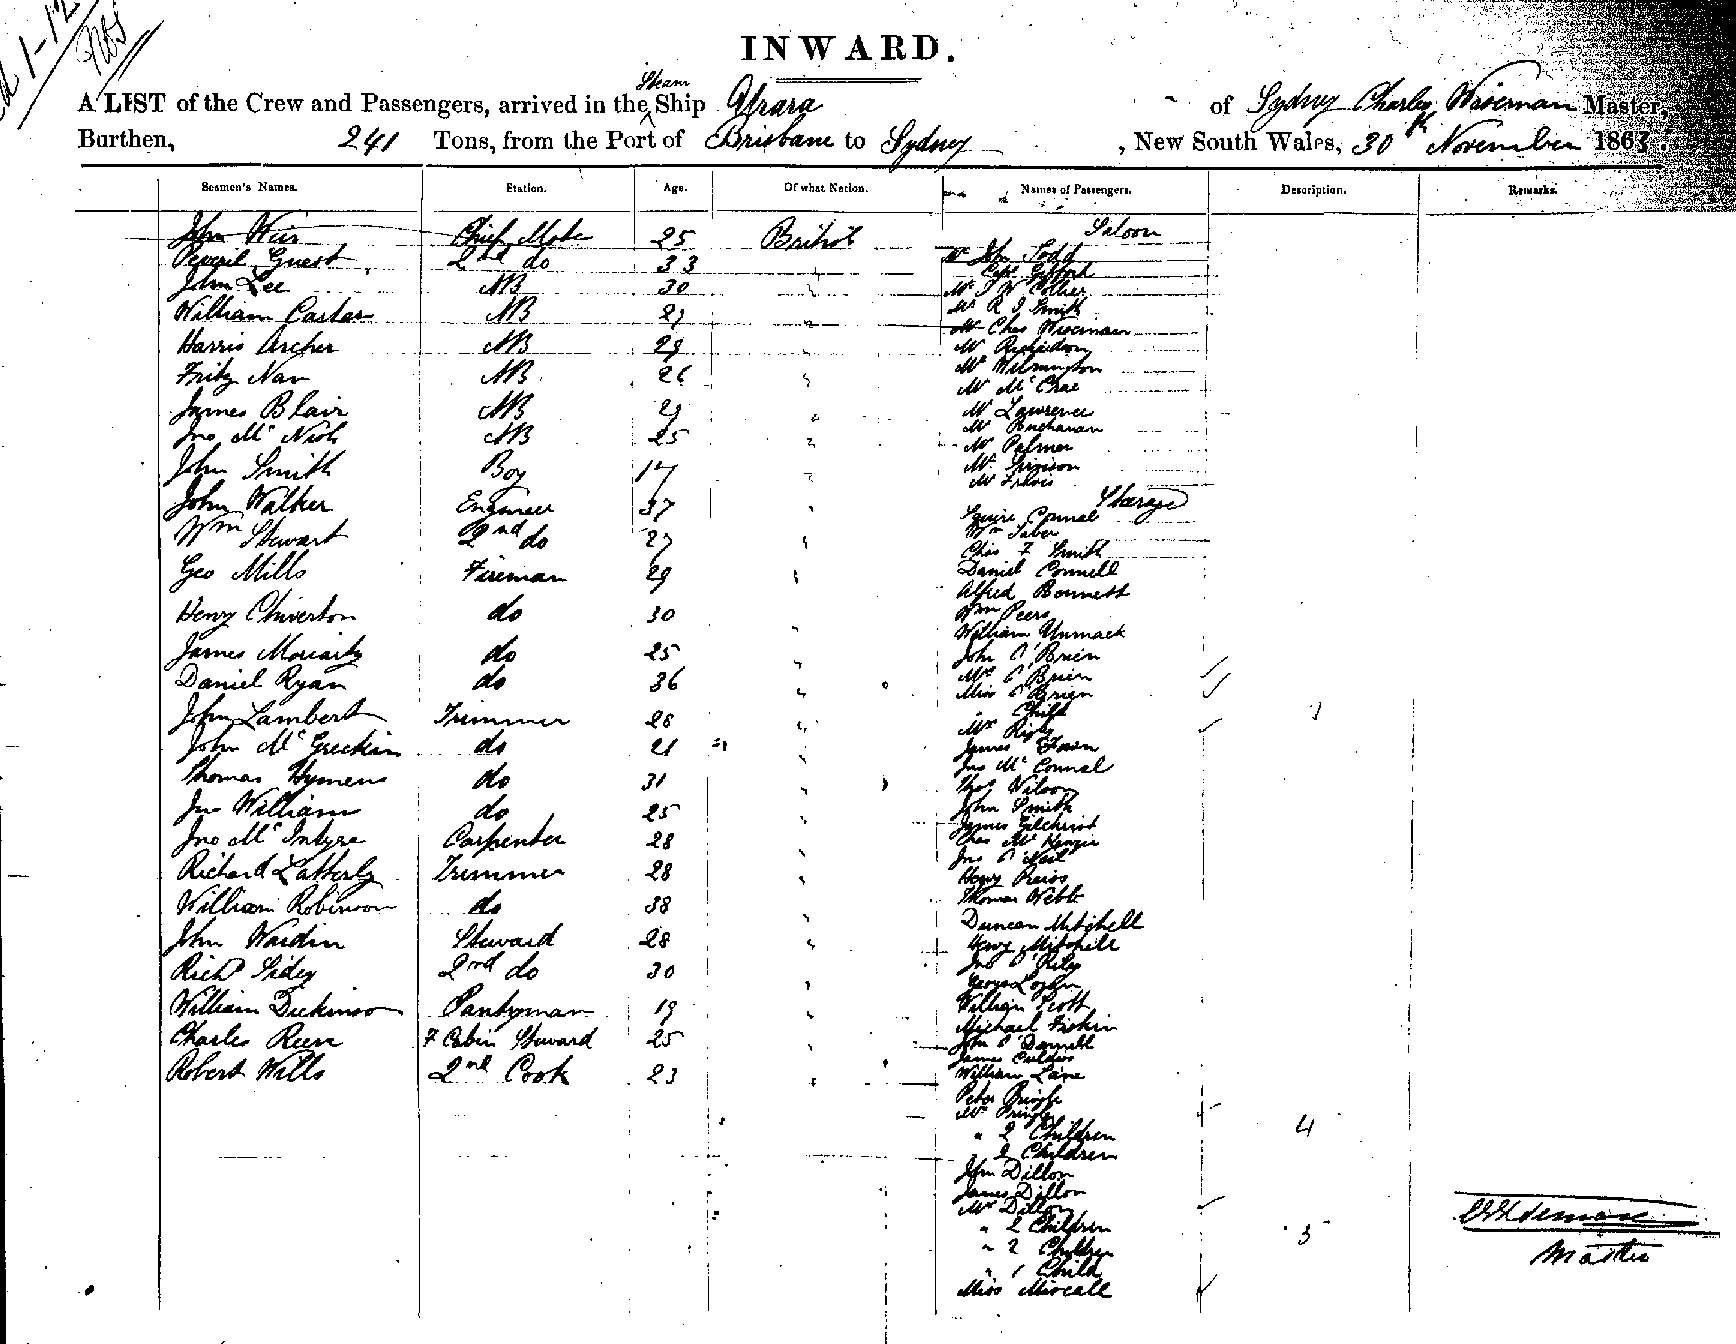 INWARD.
Steam
A LIST of the Crew and Passengers, arrived in the Ship Yarra of Sydney Charles Wiseman Master,
Burthen, 241 Tons, from the Port of Brisbane to Sydney, New South Wales, 30th November 1863.
Seamen's Names. Station. Age. Of what Nation. Names of Passengers. Description. Remarks.
John Weir Chief Mate 25 British
Guest 2nd do 33 "
John Lee AB 30 "
William Carter AB 29 "
Harris Archer AB 29 "
Fritz Nav AB 26 "
James Blair AB 29 "
Jno Mc Nish AB 25 "
John Smith Boy 17 "
John Walker Engineer 37 "
Wm Stewart 2nd do 27 "
Geo Mills Fireman 29 "
Henry Chiverton do 30 "
James Moriarty do 25 "
Daniel Ryan do 36 "
John Lambert Trimmer 28 "
John Mc do 21 "
Thomas Hymens do 31 "
Jno William do 25 "
Jno Mc Intyre Carpenter 28 "
Richard Latterly Trimmer 28 "
William Robinson do 38 "
John Wardin Steward 28 "
Richd Sidey 2nd do 30 "
William Dickinson Pantryman 19 "
Charles Reeve F Cabin Steward 25 "
Robert Wills 2nd Cook 23 "
Saloon
Mr John Todd
Capt
Mr Collier
Mr R J Smith
Mr Chas Wiseman
Mr Richardson
Mr Wilmington
Mr McCrae
Mr Lawrence
Mr Buchanan
Mr Palmer
Mr Simison
Mr Travis
Steerage
Squire Connal
Wm Taber
Chas F Smith
Daniel Connell
Alfred Bonnett
Wm Peers
William Unmack
John O'Brien
Mrs O'Brien
Miss O'Brien
" Child 1
Mrs Rigby
James Fawn
Jno McConnal
Thos Wilson
John Smith
James Gilchrist
Chas McKenzie
Jno O'Neil
Henry Preiss
Thomas Webb
Duncan Mitchell
Henry Mitchell
Jno O'Riley
George
William Scott
Michael
John O'Donnell
James
William Lane
Peter Pringle
Mrs Pringle
" 2 Children 4
" 2 Children
Jno Dillon
James Dillon
Mrs Dillon
" 2 Children 5
" 2 Children
" 1 Child
Miss Miscall
Wiseman
Master